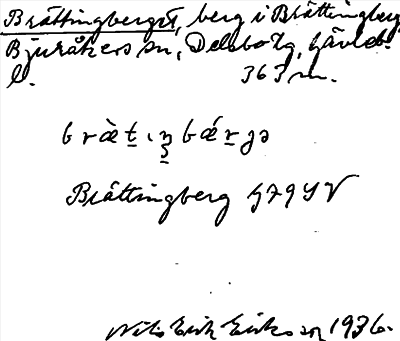 Brättingberget, berg i Brättingberg
Bjuråkers sn, Delsbo tg, Gävleb.
l. 363 m.
bræ̀tıŋbǽrgə
Brättingberg G79SV
Nils Erik Eriksson 1936.